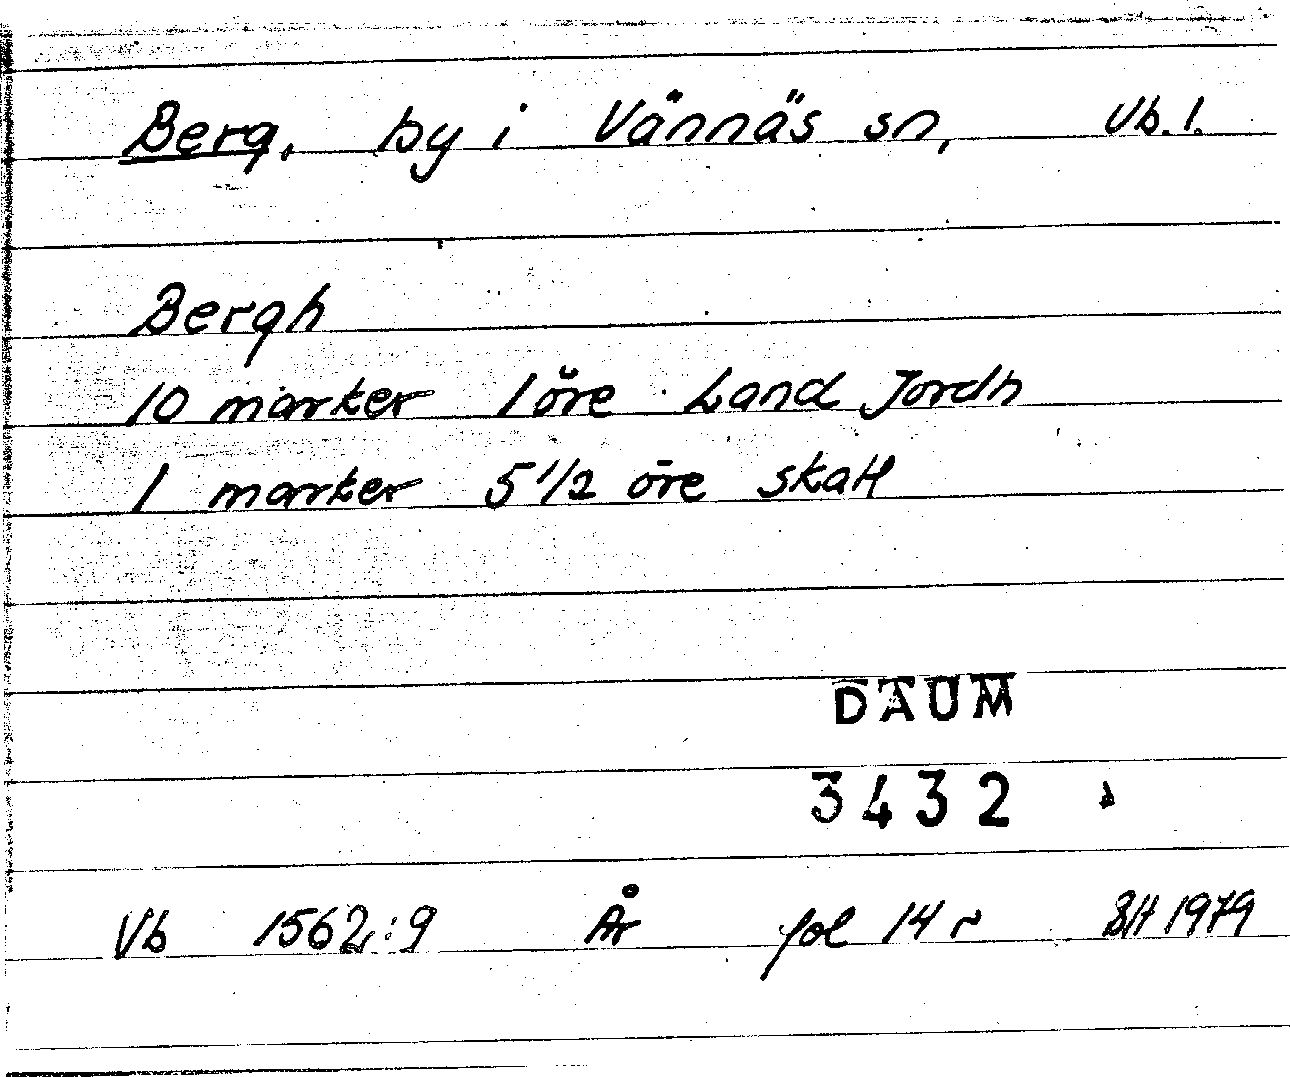 Berg, by i Vännäs sn, Vb. l.
Bergh
10 marker 1 öre Land Jordh
1 marker 5 1/2 öre skatt
DAUM
3432
Vb 1562:9 År fol 14 r BH 1979